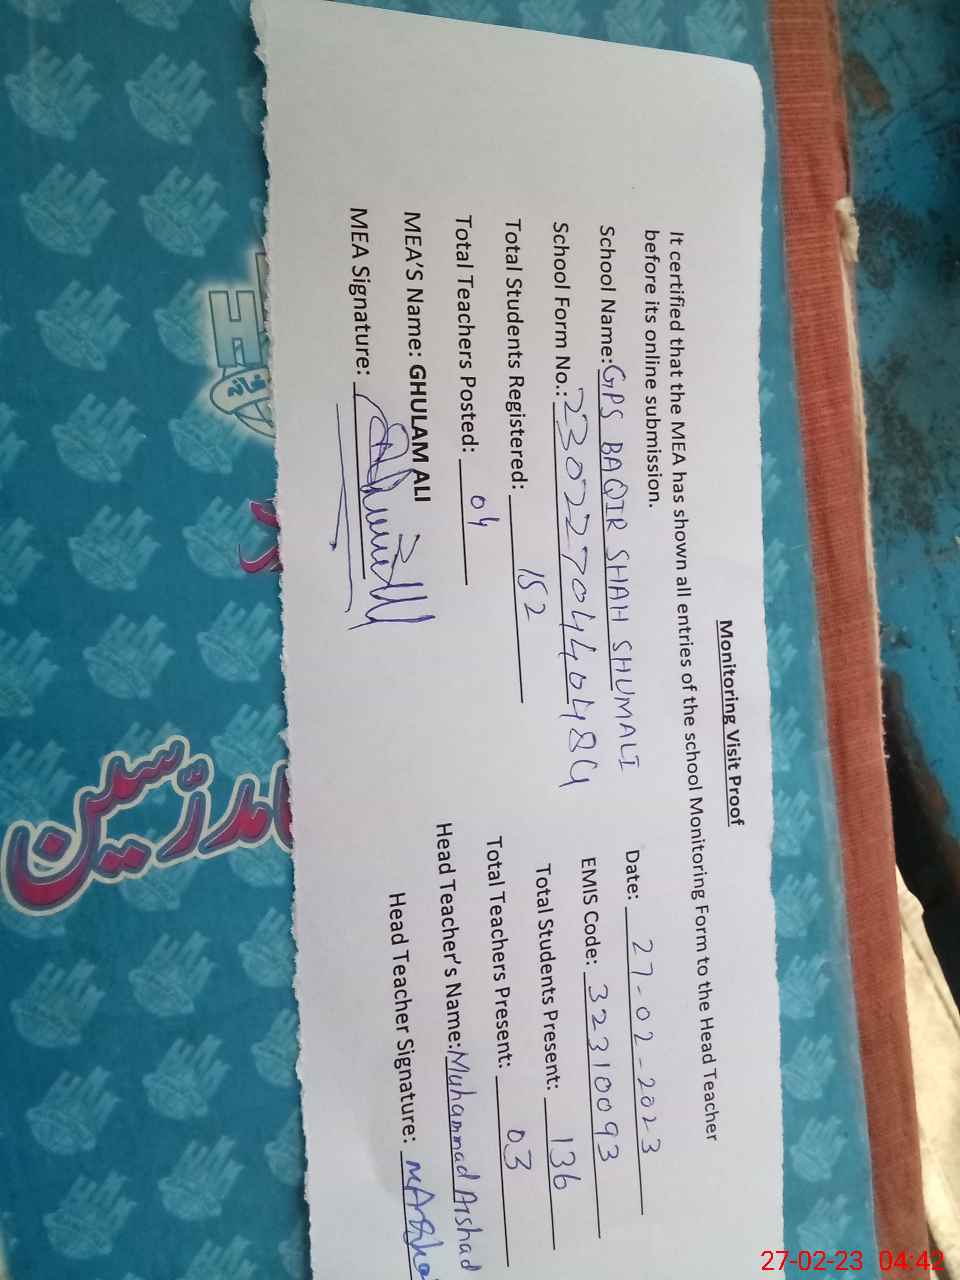 Monitoring Visit Proof
It certified that the MEA has shown all entries of the school Monitoring Form to the Head Teacher
before its online submission.
School Name: GPS BAQIR SHAH SHUMALI Date: 27-02-2023
School Form No.: 230227044040484 EMIS Code: 32310093
Total Students Registered: 152 Total Students Present: 136
Total Teachers Posted: 04 Total Teachers Present: 03
MEA'S Name: GHULAM ALI Head Teacher's Name: Muhammad Arshad
MEA Signature: Head Teacher Signature:
مدرّسین
27-02-23 04:42